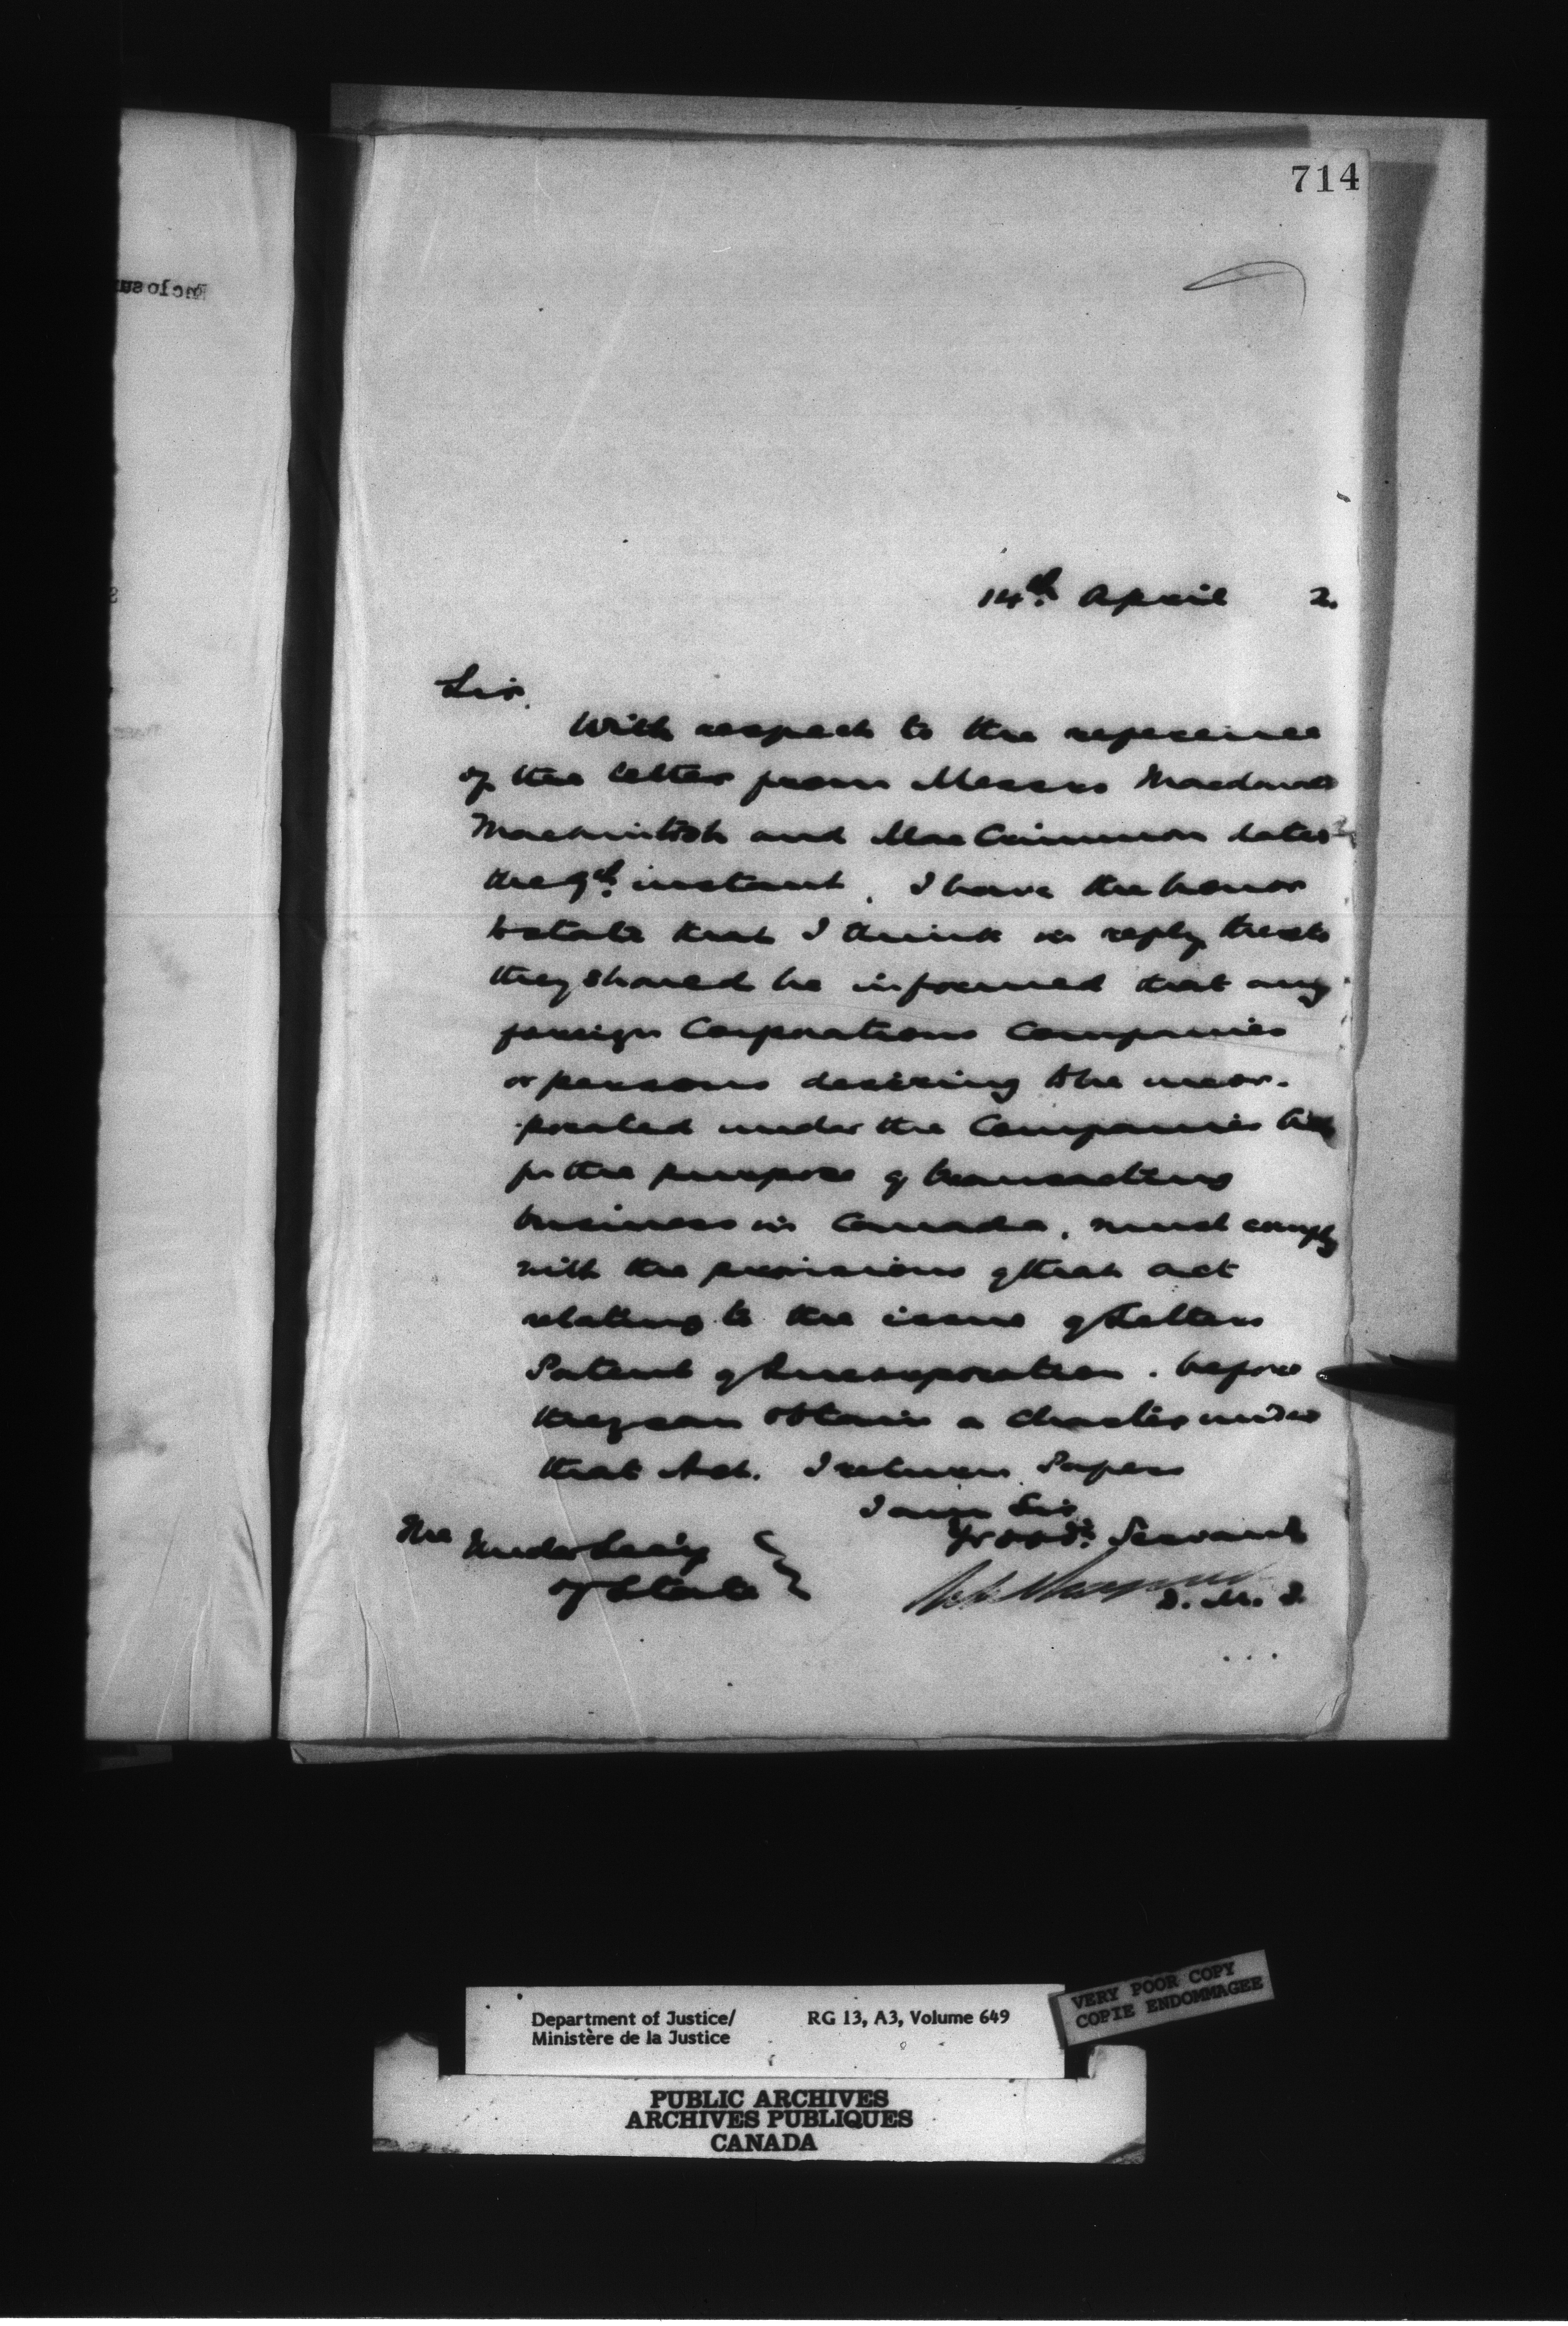 714
14th. April 2.
Sir.
With respect to the reference
of the letter from Messrs
Macintosh and MacCrimmon dated
the 9th. instant, I have the honor
to state that I think in reply thereto
they should be informed that any
foreign Corporations Companies
or persons desiring to be incor-
porated under the Companies Act
for the purpose of transacting
business in Canada, must comply
with the provisions of that act
relating to the issue of Letters
Patent of Incorporation. before
they can obtain a charter under
that Act. I return Papers
I am Sir
Yr obdt. Servant
The Under Secy
of State
D. M. J.
Department of Justice/
Ministère de la Justice
RG 13, A3, Volume 649
VERY POOR COPY
COPIE ENDOMMAGEE
PUBLIC ARCHIVES
ARCHIVES PUBLIQUES
CANADA